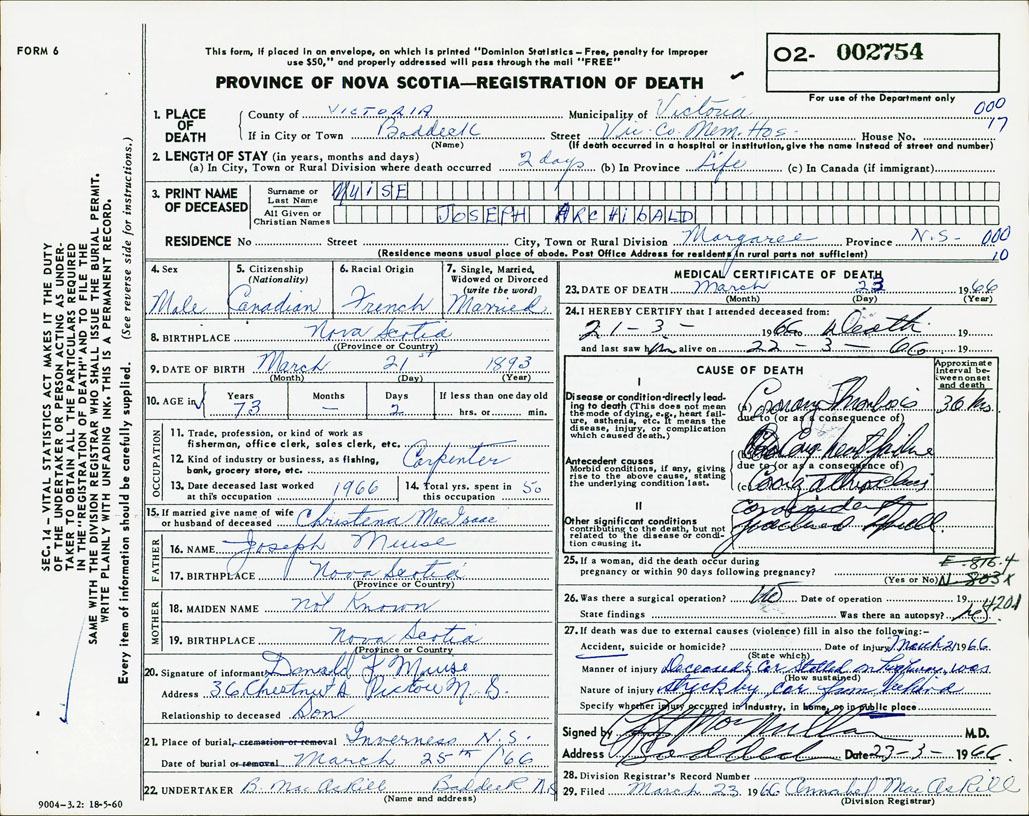 FORM 6
This form, if placed in an envelope, on which is printed "Dominion Statistics – Free, penalty for improper
use $50," and properly addressed will pass through the mail "FREE"
O2- 002754
For use of the Department only
PROVINCE OF NOVA SCOTIA—REGISTRATION OF DEATH
1. PLACE OF DEATH
County of VICTORIA Municipality of Victoria 000 17
If in City or Town Baddeck Street Vic. Co. Mem. Hos. House No.
(Name) (If death occurred in a hospital or institution, give the name instead of street and number)
2. LENGTH OF STAY (in years, months and days)
(a) In City, Town or Rural Division where death occurred 2 days (b) In Province Life (c) In Canada (if immigrant)
3. PRINT NAME OF DECEASED
Surname or Last Name MUISE
All Given or Christian Names JOSEPH ARCHIBALD
RESIDENCE No Street City, Town or Rural Division Margaree Province N.S. 000 10
(Residence means usual place of abode. Post Office Address for residents in rural parts not sufficient)
4. Sex Male
5. Citizenship (Nationality) Canadian
6. Racial Origin French
7. Single, Married, Widowed or Divorced (write the word) Married
8. BIRTHPLACE Nova Scotia
(Province or Country)
9. DATE OF BIRTH March 21st 1893
(Month) (Day) (Year)
10. AGE in Years 73 Months – Days 2 If less than one day old hrs. or min.
OCCUPATION
11. Trade, profession, or kind of work as
fisherman, office clerk, sales clerk, etc.
12. Kind of industry or business, as fishing,
bank, grocery store, etc. Carpenter
13. Date deceased last worked
at this occupation 1966
14. Total yrs. spent in
this occupation 50
15. If married give name of wife
or husband of deceased Christena MacIsaac
FATHER
16. NAME Joseph Muise
17. BIRTHPLACE Nova Scotia
(Province or Country)
MOTHER
18. MAIDEN NAME not Known
19. BIRTHPLACE Nova Scotia
(Province or Country)
20. Signature of informant Donald J Muise
Address 36 Chestnut St Pictou N.S.
Relationship to deceased Son
21. Place of burial, cremation or removal Inverness N.S.
Date of burial or removal March 25th /66
22. UNDERTAKER B. MacAskill Baddeck N.S
(Name and address)
MEDICAL CERTIFICATE OF DEATH
23. DATE OF DEATH March 23 1966
(Month) (Day) (Year)
24. I HEREBY CERTIFY that I attended deceased from:
21-3- 1966 to Death 19
and last saw him alive on 22-3-66 19
CAUSE OF DEATH
Approximate interval between onset and death
I
Disease or condition directly leading to death (This does not mean the mode of dying, e.g., heart failure, asthenia, etc. It means the disease, injury, or complication which caused death.)
(a) Coronary Thrombosis 36 hrs.
due to (or as a consequence of)
Antecedent causes
Morbid conditions, if any, giving rise to the above cause, stating the underlying condition last.
(b)
due to (or as a consequence of)
(c)
II
Other significant conditions contributing to the death, but not related to the disease or condition causing it.
25. If a woman, did the death occur during
pregnancy or within 90 days following pregnancy? (Yes or No)
E-816.4
N-803X
26. Was there a surgical operation? No Date of operation 19
4201
State findings Was there an autopsy? no
27. If death was due to external causes (violence) fill in also the following:–
Accident, suicide or homicide? Date of injury March 21 1966
(State which)
Manner of injury Deceased's Car Stalled on highway, was
(How sustained)
Nature of injury struck by car from behind
Specify whether injury occurred in industry, in home, or in public place
Signed by MacMillan M.D.
Address Baddeck Date 23-3- 1966
28. Division Registrar's Record Number
29. Filed March 23 1966 Annabel MacAskill
(Division Registrar)
SEC. 14 – VITAL STATISTICS ACT MAKES IT THE DUTY
OF THE UNDERTAKER OR PERSON ACTING AS UNDER-
TAKER TO OBTAIN ALL THE PARTICULARS REQUIRED
IN THE "REGISTRATION OF DEATH" AND TO FILE THE
SAME WITH THE DIVISION REGISTRAR WHO SHALL ISSUE THE BURIAL PERMIT.
WRITE PLAINLY WITH UNFADING INK. THIS IS A PERMANENT RECORD.
Every item of information should be carefully supplied. (See reverse side for instructions.)
9004-3.2: 18-5-60